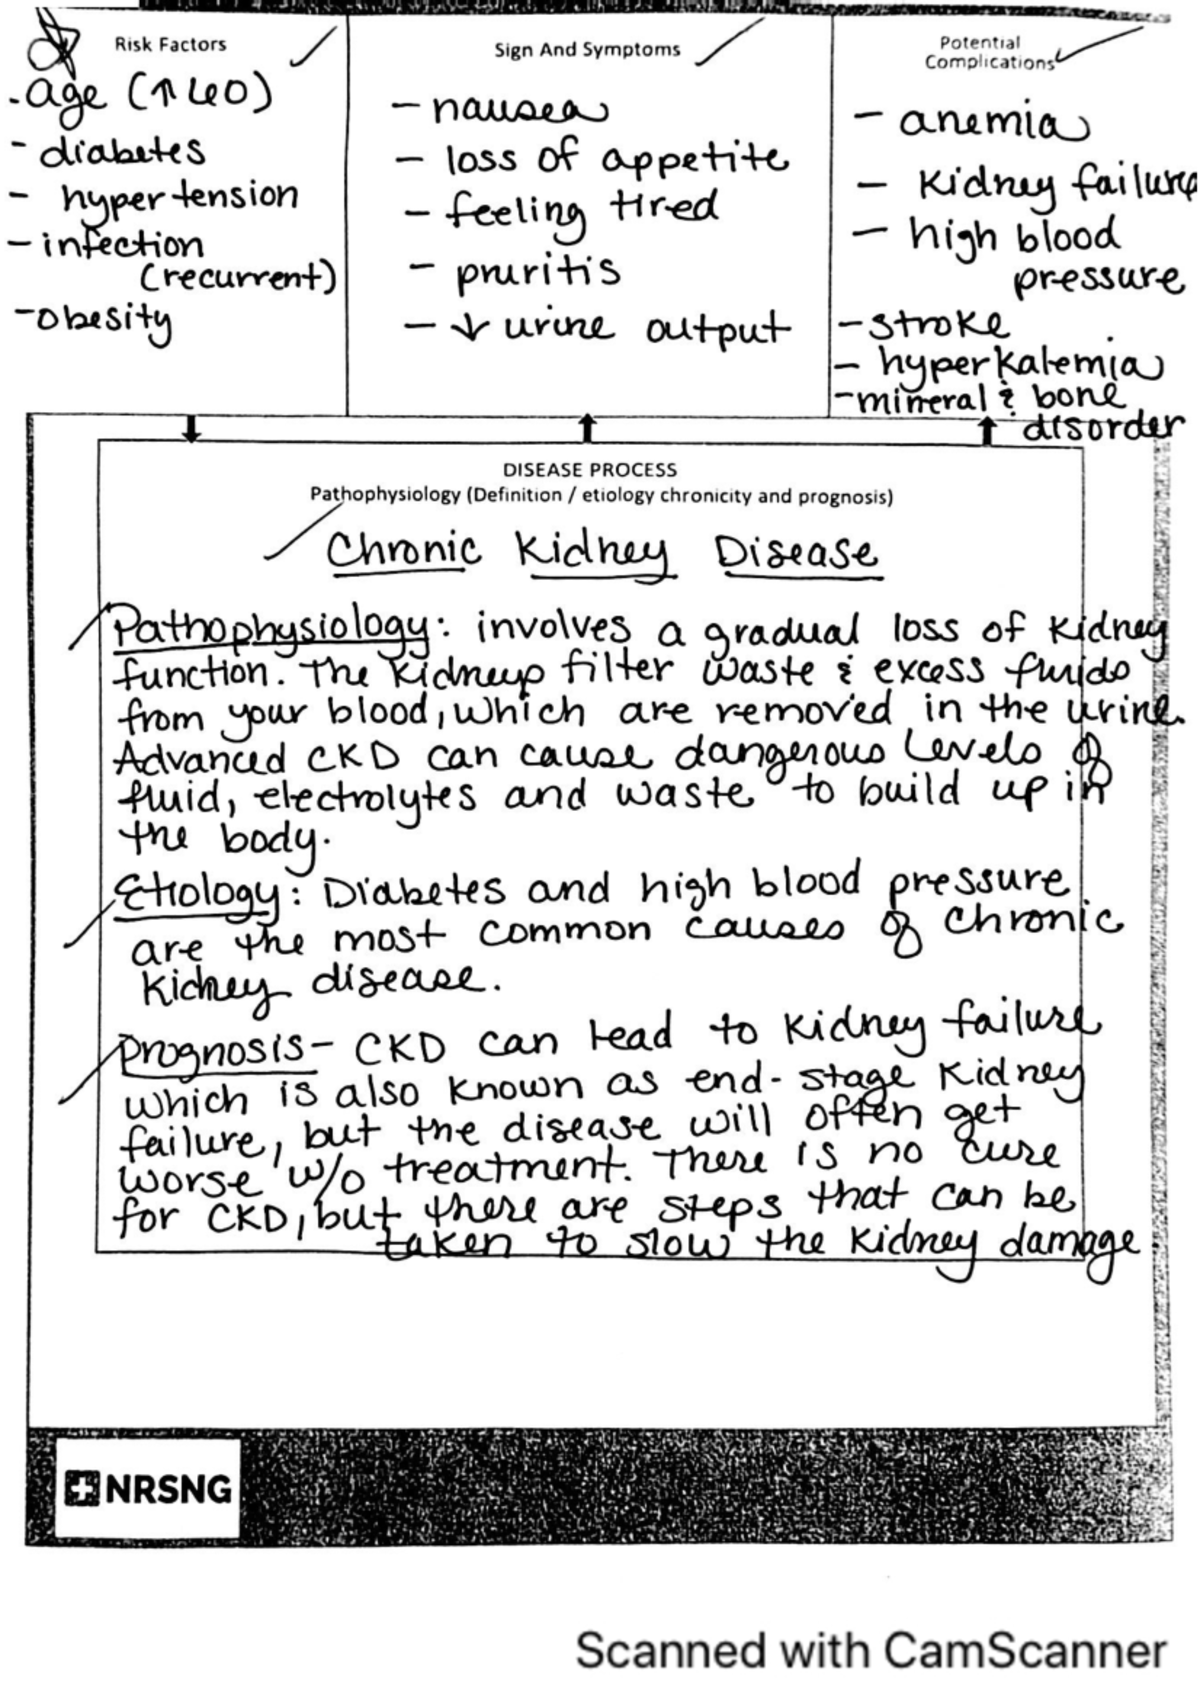 Risk Factors
- age (↑ 40)
- diabetes
- hypertension
- infection
(recurrent)
- obesity
Sign And Symptoms
- nausea
- loss of appetite
- feeling tired
- pruritis
- ↓ urine output
Potential
Complications
- anemia
- Kidney failure
- high blood
pressure
- stroke
- hyperkalemia
- mineral & bone
disorder
DISEASE PROCESS
Pathophysiology (Definition / etiology chronicity and prognosis)
Chronic Kidney Disease
Pathophysiology: involves a gradual loss of kidney
function. The kidneys filter waste & excess fluids
from your blood, which are removed in the urine.
Advanced CKD can cause dangerous levels of
fluid, electrolytes and waste to build up in
the body.
Etiology: Diabetes and high blood pressure
are the most common causes of chronic
kidney disease.
Prognosis - CKD can lead to kidney failure
which is also known as end-stage kidney
failure, but the disease will often get
worse w/o treatment. There is no cure
for CKD, but there are steps that can be
taken to slow the kidney damage
NRSNG
Scanned with CamScanner